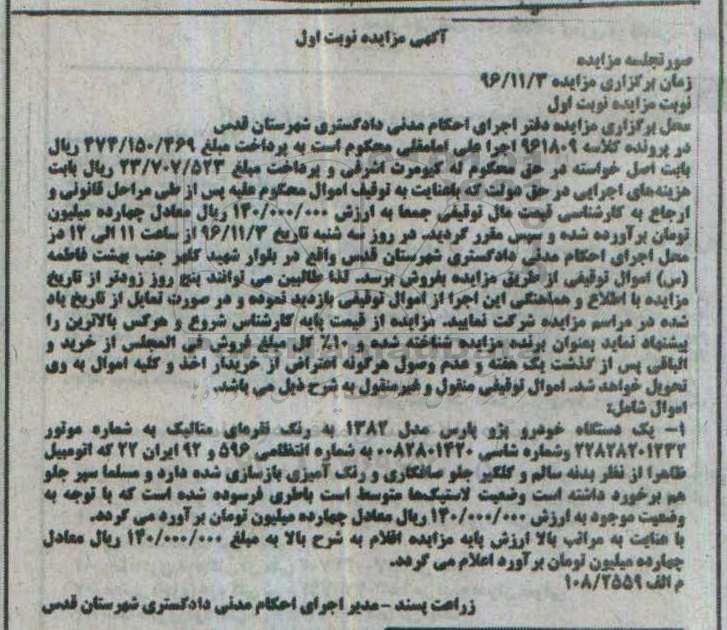 آگهی مزایده نوبت اول
صورتجلسه مزایده
زمان برگزاری مزایده ۹۶/۱۱/۳
نوبت مزایده نوبت اول
محل برگزاری مزایده دفتر اجرای احکام مدنی دادگستری شهرستان قدس
در پرونده کلاسه ۹۶۱۸۰۹ اجرا علی امامقلی محکوم است به پرداخت مبلغ ۴۷۴/۱۵۰/۳۶۹ ریال
بابت اصل خواسته در حق محکوم له کیومرث اشرفی و پرداخت مبلغ ۲۳/۷۰۷/۵۲۳ ریال بابت
هزینه‌های اجرایی در حق دولت که باعنایت به توقیف اموال محکوم علیه پس از طی مراحل قانونی و
ارجاع به کارشناسی قیمت مال توقیفی جمعا به ارزش ۱۴۰/۰۰۰/۰۰۰ ریال معادل چهارده میلیون
تومان برآورده شده و سپس مقرر گردید. در روز سه شنبه تاریخ ۹۶/۱۱/۳ از ساعت ۱۱ الی ۱۲ در
محل اجرای احکام مدنی دادگستری شهرستان قدس واقع در بلوار شهید کلهر جنب بهشت فاطمه
(س) اموال توقیفی از طریق مزایده بفروش برسد. لذا طالبین می توانند پنج روز زودتر از تاریخ
مزایده با اطلاع و هماهنگی این اجرا از اموال توقیفی بازدید نموده و در صورت تمایل از تاریخ یاد
شده در مراسم مزایده شرکت نمایند. مزایده از قیمت پایه کارشناس شروع و هرکس بالاترین را
پیشنهاد نماید بعنوان برنده مزایده شناخته شده و ۱۰٪ کل مبلغ فروش فی المجلس از خرید و
الباقی پس از گذشت یک هفته و عدم وصول هرگونه اعتراض از خریدار اخذ و کلیه اموال به وی
تحویل خواهد شد. اموال توقیفی منقول و غیرمنقول به شرح ذیل می باشد.
اموال شامل:
۱- یک دستگاه خودرو پژو پارس مدل ۱۳۸۲ به رنگ نقره‌ای متالیک به شماره موتور
۲۲۸۲۸۲۰۱۲۳۲ وشماره شاسی ۰۰۸۲۸۰۱۴۲۰ به شماره انتظامی ۵۹۶ و ۹۲ ایران ۲۲ که اتومبیل
ظاهرا از نظر بدنه سالم و گلگیر جلو صافکاری و رنگ آمیزی بازسازی شده دارد و مسلما سپر جلو
هم برخورد داشته است وضعیت لاستیک‌ها متوسط است باطری فرسوده شده است که با توجه به
وضعیت موجود به ارزش ۱۴۰/۰۰۰/۰۰۰ ریال معادل چهارده میلیون تومان برآورد می گردد.
با عنایت به مراتب بالا ارزش پایه مزایده اقلام به شرح بالا به مبلغ ۱۴۰/۰۰۰/۰۰۰ ریال معادل
چهارده میلیون تومان برآورد اعلام می گردد.
م الف ۱۰۸/۲۵۵۹
زراعت پسند - مدیر اجرای احکام مدنی دادگستری شهرستان قدس